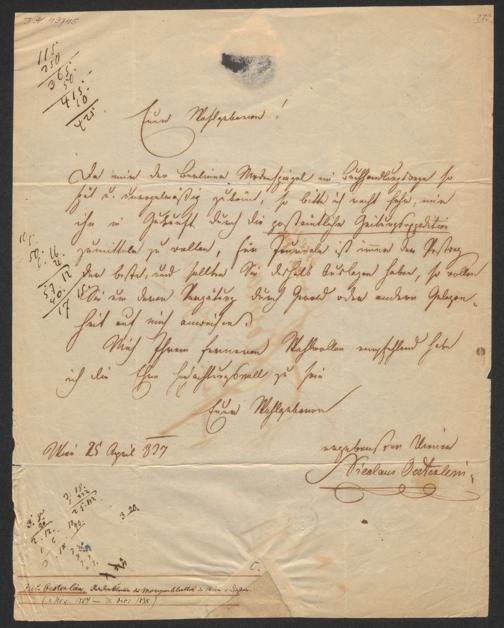 I.N 43745
115.
250
365.
50.
415.
10
425
Euer Wohlgeboren!
Da mir der Berliner Modenspiegel im Buchhandlungswege so
spät u. unregelmäßig zukömmt, so bitte ich recht sehr, mir
ihn in Zukunft durch die postämtliche Zeitungsexpedition
zumitteln zu wollen, für Journale ist immer der Postweg
der beste, und sollten Sie deshalb Auslagen haben, so wollen
Sie um deren Vergütung durch Gerold oder andere Gelegen-
heit auf mich anweisen.
Mich Ihrem ferneren Wohlwollen empfehlend habe
ich die Ehre hochachtungsvoll zu sein
Euer Wohlgeboren
Wien 25 April 837
ergebenster Diener
Nicolaus Oesterlein
3.20
Nic. Oesterlein, Redakteur des Morgenblattes in Wien